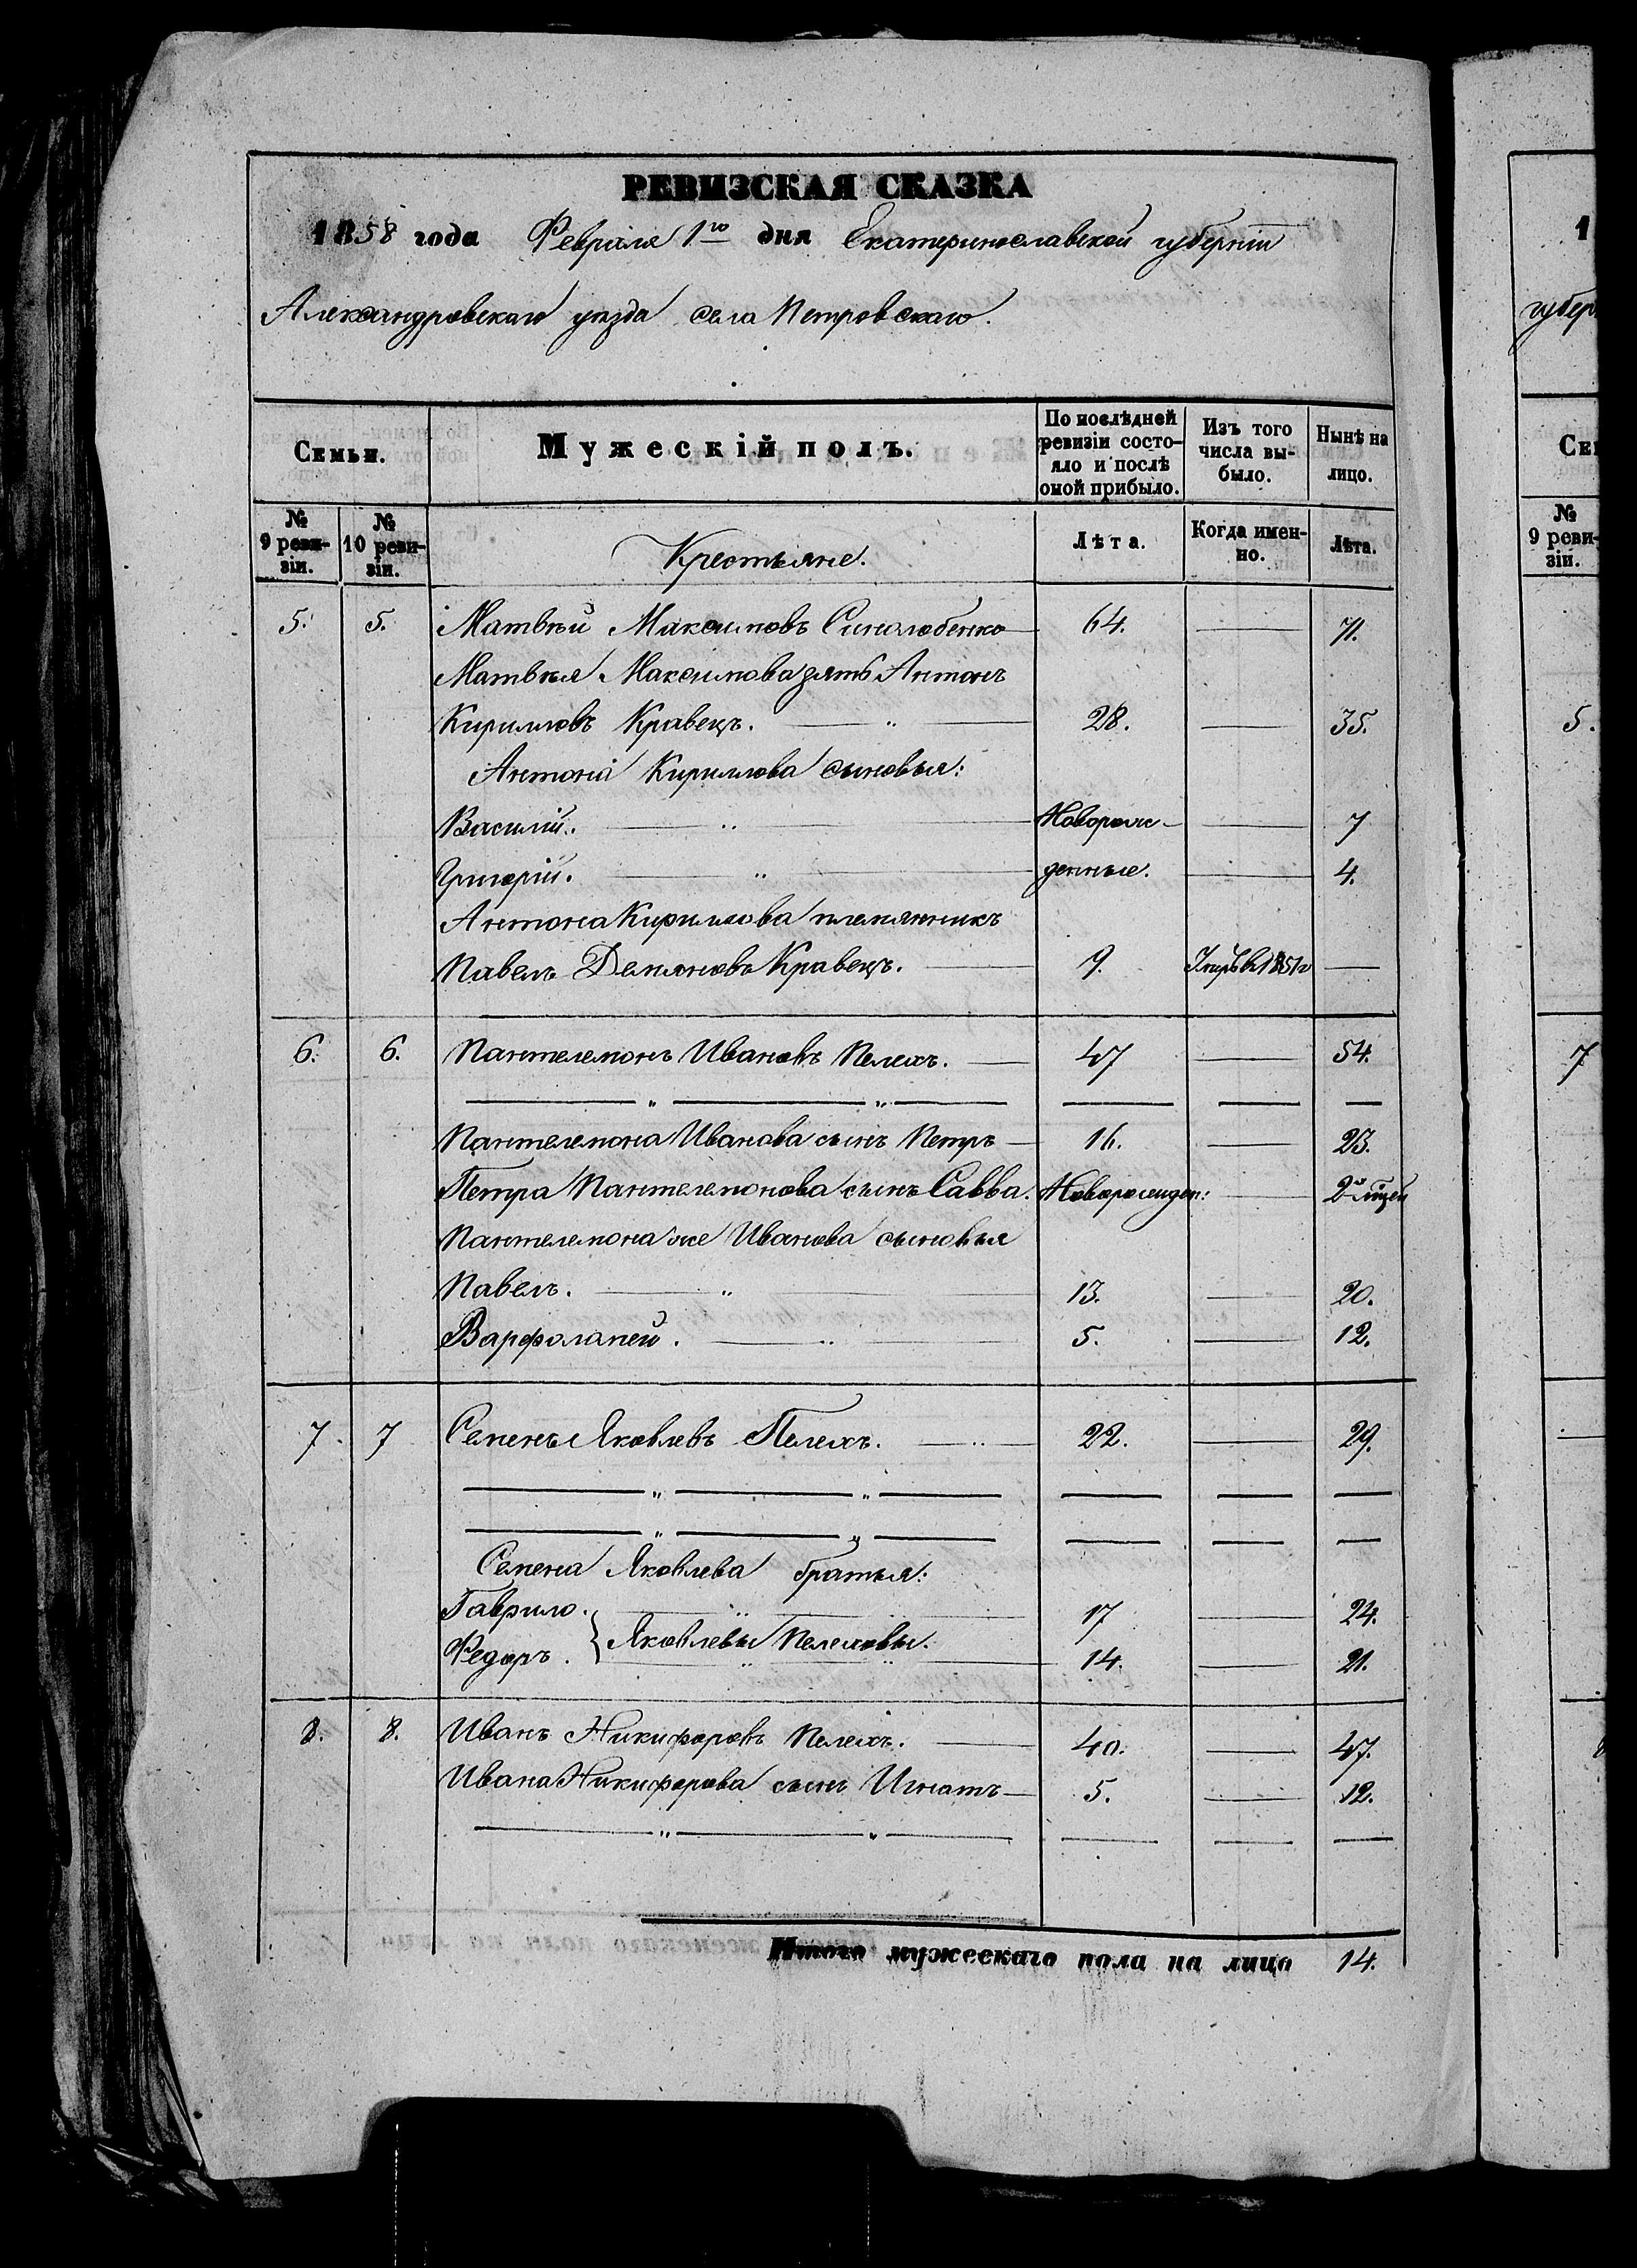 РЕВИЗСКАЯ СКАЗКА
1858 года Февраля 1го дня Екатеринославской губерніи
Александровскаго уѣзда села Петровскаго.
Семьи.
Мужескій полъ.
По послѣдней ревизіи состо-
яло и послѣ оной прибыло.
Изъ того числа вы-
было.
Нынѣ на лицо.
№ 9 реви-
зіи.
№ 10 реви-
зіи.
Крестьяне.
Лѣта.
Когда имен-
но.
Лѣта.
5. 5. Матвѣй Максимовъ Синолобенко — 64. — 71.
Матвѣя Максимова зять Антонъ
Кирилловъ Кравецъ. — „ — 28. — 35.
Антона Кириллова сыновья:
Василій. — „ — Новорож- — 7
Григорій. — „ — денные. — 4.
Антона Кириллова племянникъ
Павелъ Демяновъ Кравецъ. — 9. Умръ въ 1851г —
6. 6. Пантелемонъ Ивановъ Пелехъ. — 47 — 54.
— „ — „ — — — —
Пантелемона Иванова сынъ Петръ — 16. — 23.
Петра Пантелемонова сынъ Савва. Новорожден: — 2
Пантелемона же Иванова сыновья
Павелъ. — „ — 13. — 20.
Варфоламей. — „ — 5. — 12.
7. 7 Семенъ Яковлевъ Пелехъ. — „ — 22. — 29.
— „ — „ — — — —
— „ — „ — — — —
Семена Яковлева братья:
Гаврило. — „ — 17 — 24.
Федоръ. } Яковлевы Пелеховы. — 14. — 21.
8. 8. Иванъ Никифоровъ Пелехъ. — 40. — 47.
Ивана Никифорова сынъ Игнатъ — 5. — 12.
— „ — „ — — — —
Итого мужескаго пола на лицо 14.
1
губер
Се
№ 9 реви-
зіи.
5.
7